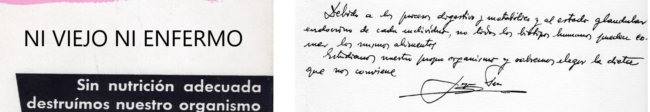 NI VIEJO NI ENFERMO
Sin nutrición adecuada
destruímos nuestro organismo
Debido a los procesos digestivos y metabólicos y al estado glandular
endocrino de cada individuo, no todos los biotipos humanos pueden co-
mer los mismos alimentos
Estudiemos nuestro propio organismo y sabremos elegir la dieta
que nos conviene